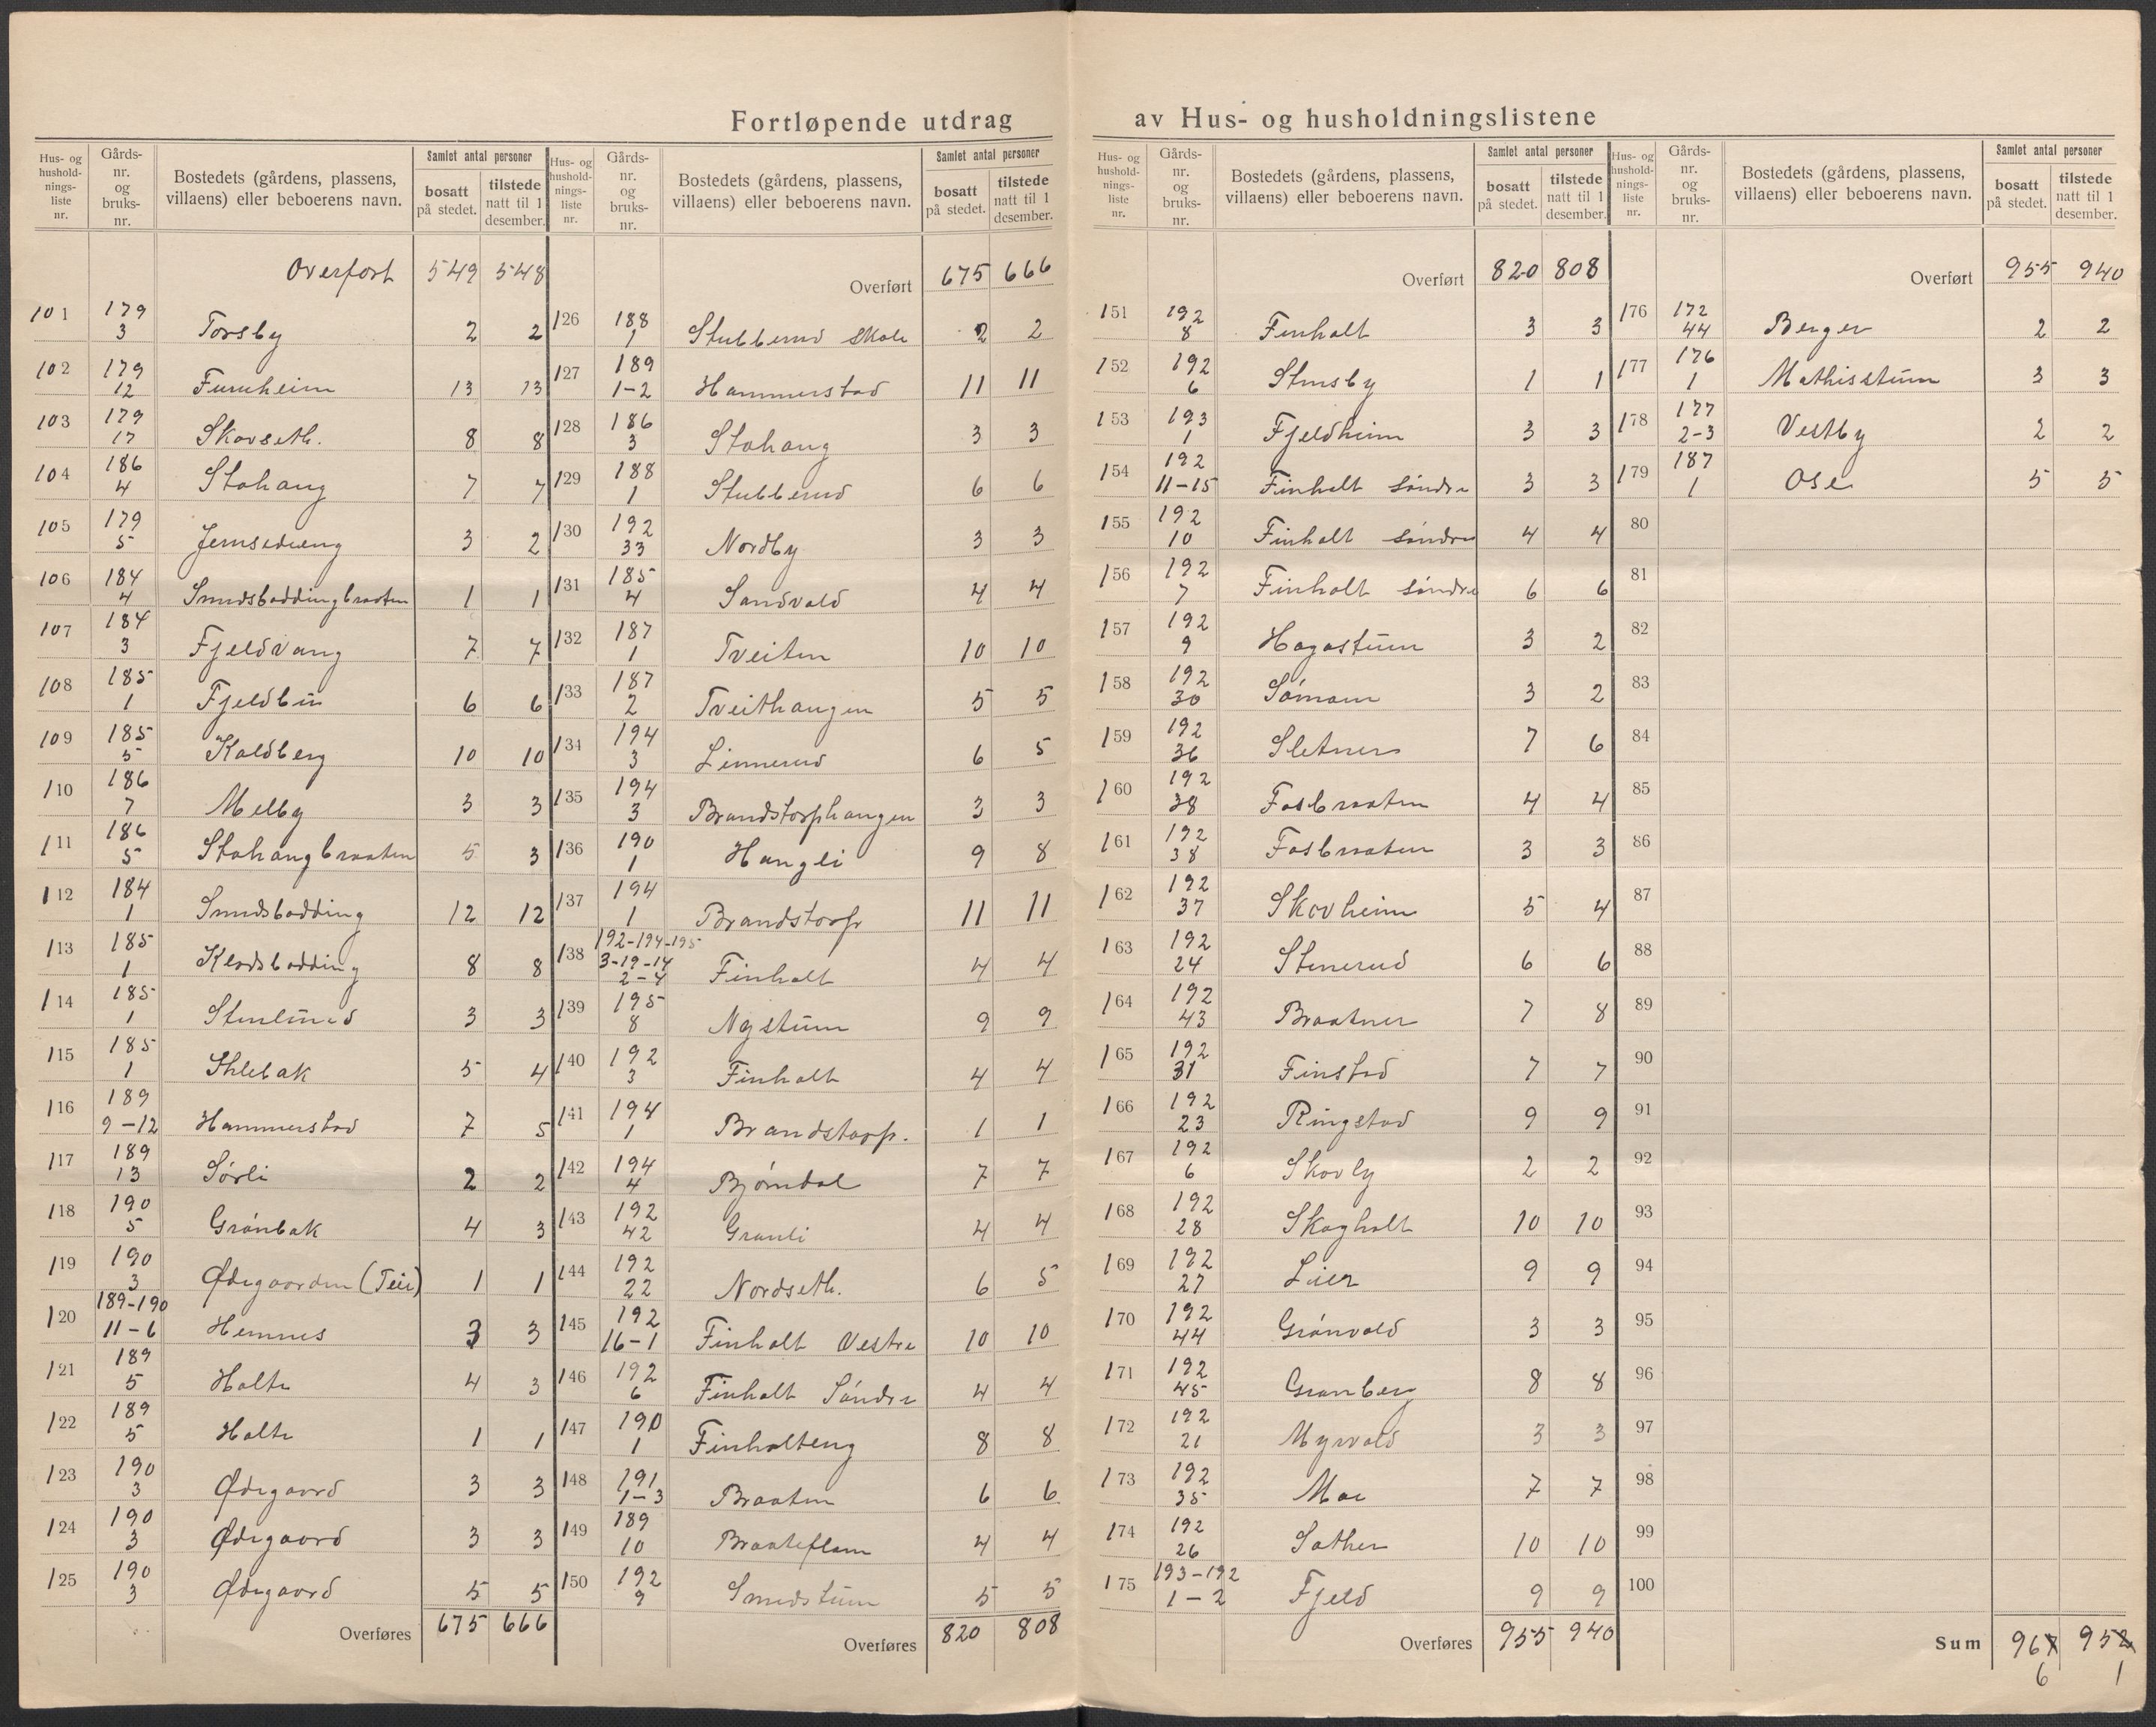 Fortløpende utdrag av Hus- og husholdningslistene
Hus- og hushold- nings- liste nr. | Gårds- nr. og bruks- nr. | Bostedets (gårdens, plassens, villaens) eller beboerens navn. | Samlet antal personer | bosatt på stedet. | tilstede natt til 1 desember.
Overført 549 548
101 179 3 Torsby 2 2
102 179 12 Furuheim 13 13
103 179 17 Skovseth. 8 8
104 186 4 Stohaug 7 7
105 179 5 3 2
106 184 4 Smedsboddingbraaten 1 1
107 184 3 Fjeldvang 7 7
108 185 1 Fjeldbu 6 6
109 185 5 Koldberg 10 10
110 186 7 Melby 3 3
111 186 5 Stohaugbraaten 5 3
112 184 1 Smedsbodding 12 12
113 185 1 8 8
114 185 1 Stenlund 3 3
115 185 1 5 4
116 189 9-12 Hammerstad 7 5
117 189 13 Sørli 2 2
118 190 5 Grönbak 4 3
119 190 3 Ødegaarden (Teie) 1 1
120 189-190 11-6 Hemnes 3 3
121 189 5 Holte 4 3
122 189 5 Holte 1 1
123 190 3 Ødegaard 3 3
124 190 3 Ødegaard 3 3
125 190 3 Ødegaard 5 5
Overføres 675 666
Hus- og hushold- nings- liste nr. | Gårds- nr. og bruks- nr. | Bostedets (gårdens, plassens, villaens) eller beboerens navn. | Samlet antal personer | bosatt på stedet. | tilstede natt til 1 desember.
Overført 675 666
126 188 1 Stubberud skole 2 2
127 189 1-2 Hammerstad 11 11
128 186 3 Stohaug 3 3
129 188 1 Stubberud 6 6
130 192 33 Nordby 3 3
131 185 4 Sandvold 4 4
132 187 1 Tveiten 10 10
133 187 2 Tveithaugen 5 5
134 194 3 Linnerud 6 5
135 194 3 Brandstorphaugen 3 3
136 190 1 Haugli 9 8
137 194 1 Brandstorp 11 11
138 192-194-195 3-19-14 2-4 Finholt 4 4
139 195 8 Nystuen 9 9
140 192 3 Finholt 4 4
141 194 1 Brandstorp. 1 1
142 194 4 Bjørndal 7 7
143 192 42 Granli 4 4
144 192 22 Nordseth. 6 5
145 192 16-1 Finholt Vestre 10 10
146 192 6 Finholt Söndre 4 4
147 190 1 Finholteng 8 8
148 191 1-3 Braaten 6 6
149 189 10 Braateflam 4 4
150 192 9 Smedstuen 5 5
Overføres 820 808
Hus- og hushold- nings- liste nr. | Gårds- nr. og bruks- nr. | Bostedets (gårdens, plassens, villaens) eller beboerens navn. | Samlet antal personer | bosatt på stedet. | tilstede natt til 1 desember.
Overført 820 808
151 192 8 Finholt 3 3
152 192 6 Stensby 1 1
153 193 1 Fjeldheim 3 3
154 192 11-15 Finholt söndre 3 3
155 192 10 Finholt söndre 4 4
156 192 7 Finholt söndre 6 6
157 192 9 Hagastuen 3 2
158 192 30 Sömoen 3 2
159 192 36 Sletner 7 6
160 192 38 Fosbraaten 4 4
161 192 38 Fosbraaten 3 3
162 192 37 Skovheim 5 4
163 192 24 Stenerud 6 6
164 192 43 Braatner 7 8
165 192 31 Finstad 7 7
166 192 23 Ringstad 9 9
167 192 6 Skovly 2 2
168 192 28 Skogholt 10 10
169 192 27 Lier 9 9
170 192 44 Grönvold 3 3
171 192 45 Granberg 8 8
172 192 21 Myrvold 3 3
173 192 35 Moe 7 7
174 192 26 Sather 10 10
175 193-192 1-2 Fjeld 9 9
Overføres 955 940
Hus- og hushold- nings- liste nr. | Gårds- nr. og bruks- nr. | Bostedets (gårdens, plassens, villaens) eller beboerens navn. | Samlet antal personer | bosatt på stedet. | tilstede natt til 1 desember.
Overført 955 940
176 172 44 Berger 2 2
177 176 1 Mathisstuen 3 3
178 177 2-3 Vestby 2 2
179 187 1 Ose 5 5
80
81
82
83
84
85
86
87
88
89
90
91
92
93
94
95
96
97
98
99
100
Sum 967 952
6 1